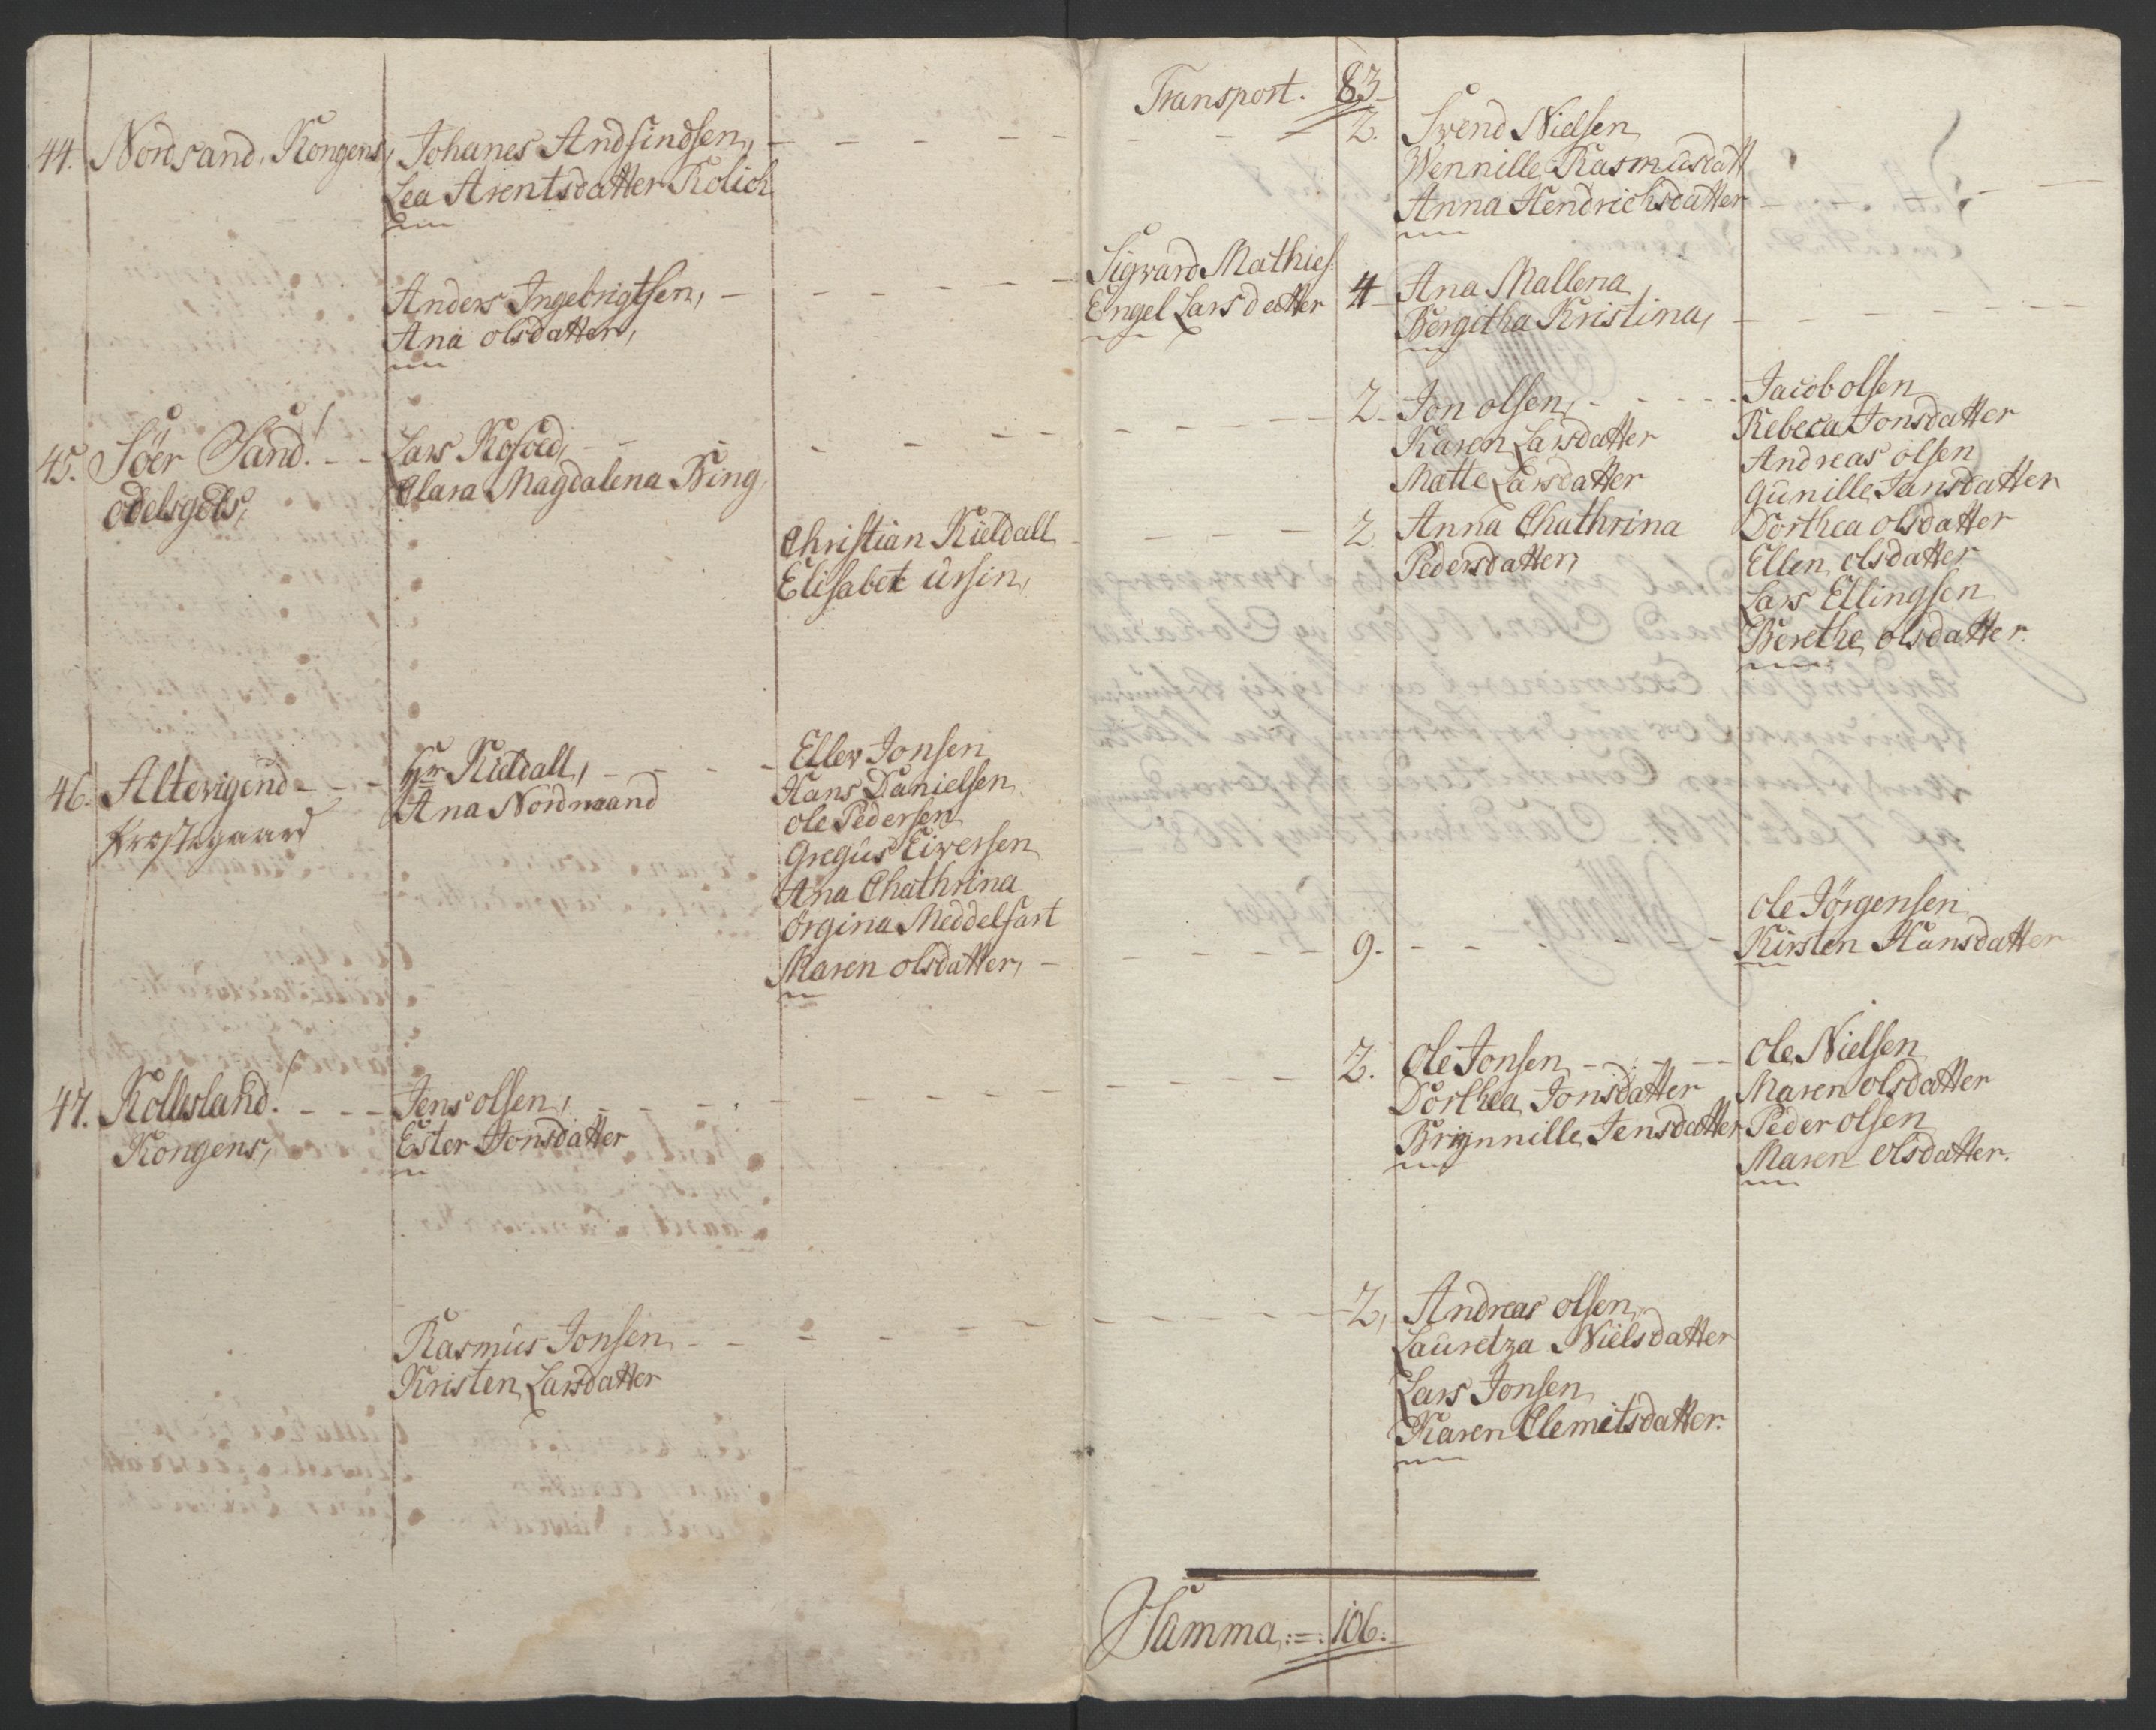 44. Nordsand, Kongens, Johanes Andsindsen,
Lea Arentsdatter Kolich
Anders Ingebrigtsen,
Ana olsdatter,
45. Söer Sand! Lars Kofoed,
odelsgods, Clara Magdalena Bing,
Christian Kieldall
Elisabet ursin,
46. Altevigend Hr Kieldall, Eller Jonsen
Præstegaard Ana Nordmand Hans Danielsen
ole Pedersen
Gregus Eiversen
Ana Chathrina
örgina Meddelfart
Maren olsdatter,
47. Kollesland! Jens olsen,
Kongens, Ester Jonsdatter
Rasmus Jonsen
Kristen Larsdatter
Transport. 83
2. Svend Nielsen
Wennille Rasmusdatt
Anna Hendrichsdatter
Sigvard Mathies: 4 Ana Mallena
Engel Larsdatter Bergitha Kristina,
2 Jon olsen, Jacob olsen
Karen Larsdatter Rebeca Jonsdatter
Matte Larsdatter Andreas olsen
Gunille Jansdatter
2 Anna Chathrina Dorthea olsdatter
Pedersdatter, Ellen olsdatter
Lars Ellingsen
Berethe olsdatter.
ole Jörgensen
9. Kirsten Hansdatter
2. Ole Jonsen ole Nielsen
Dorthea Jonsdatter Maren olsdatter
Brynnille Jensdatter Peder olsen
Maren olsdatter.
2, Andreas olsen,
Lauretza Nielsdatter
Lars Jonsen
Karen Clemitsdatter.
Summa:=: 106: